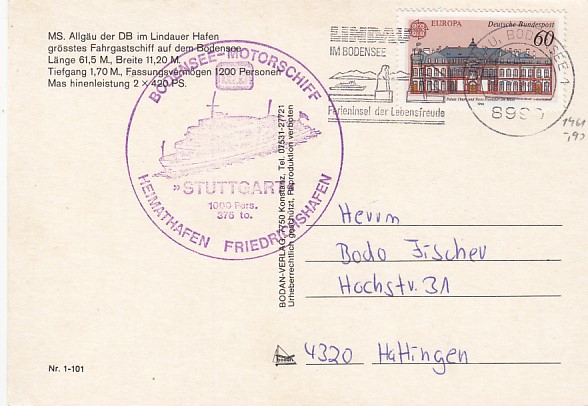 MS. Allgäu der DB im Lindauer Hafen
grösstes Fahrgastschiff auf dem Bodensee
Länge 61,5 M., Breite 11,20 M.
Tiefgang 1,70 M., Fassungsvermögen 1200 Personen
Maschinenleistung 2 × 420 PS.
BODENSEE-MOTORSCHIFF
»STUTTGART«
1000 Pers.
376 to.
HEIMATHAFEN FRIEDRICHSHAFEN
BODAN-VERLAG, 7750 Konstanz, Tel. 07531-27721
Urheberrechtlich geschützt, Reproduktion verboten
LINDAU
IM BODENSEE
Ferieninsel der Lebensfreude
EUROPA
Deutsche Bundespost
60
BODENSEE 1
Herrn
Bodo Fischer
Hochstr. 31
4320 Hattingen
Nr. 1-101